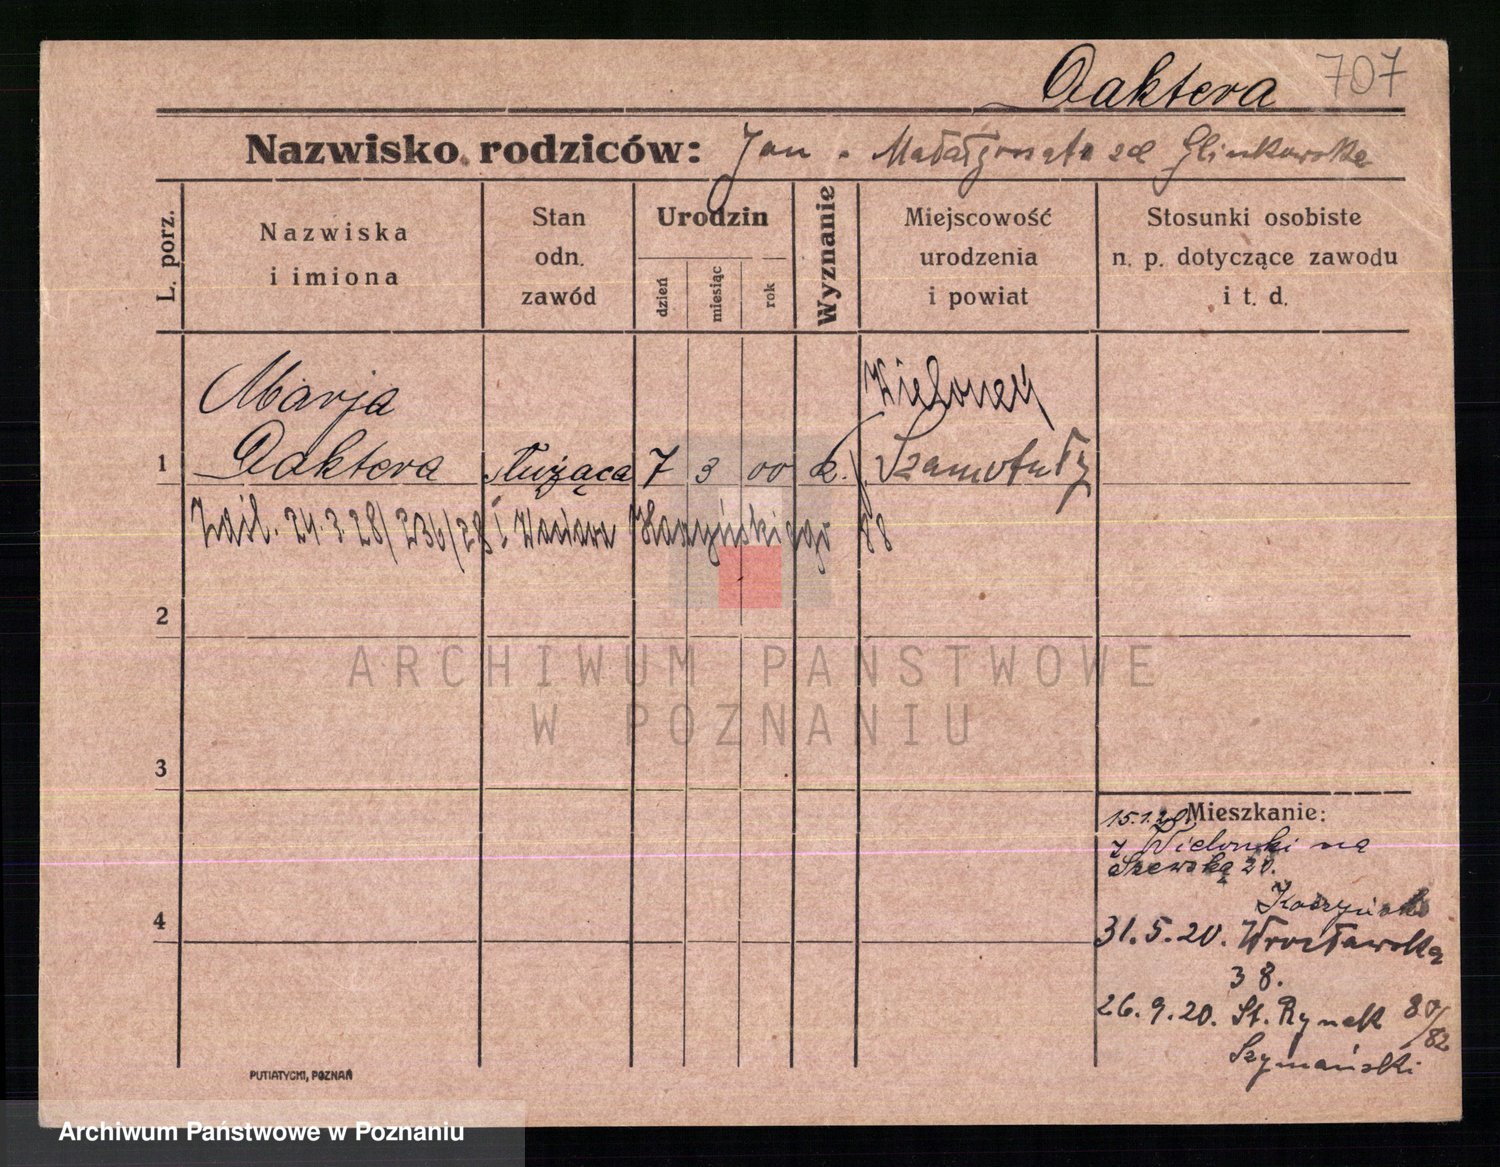 Daktera 707
Nazwisko rodziców: Jan - Małałgonata zd Glinkowska
L. porz.
Nazwiska
i imiona
Stan
odn.
zawód
Urodzin
dzień
miesiąc
rok
Wyznanie
Miejscowość
urodzenia
i powiat
Stosunki osobiste
n. p. dotyczące zawodu
i t. d.
Marja Wielonek
1 Daktera służąca 7 3 00 k. Szamotuły
24 3 28/236/28
88
2
3
4
ARCHIWUM PAŃSTWOWE
W POZNANIU
Mieszkanie:
15.1.20.
z Wielonki na
Szewską 20.
31.5.20. Wrocławska
38.
26.9.20. St. Rynek 80/82
Szymański
PUTIATYCKI, POZNAŃ
Archiwum Państwowe w Poznaniu